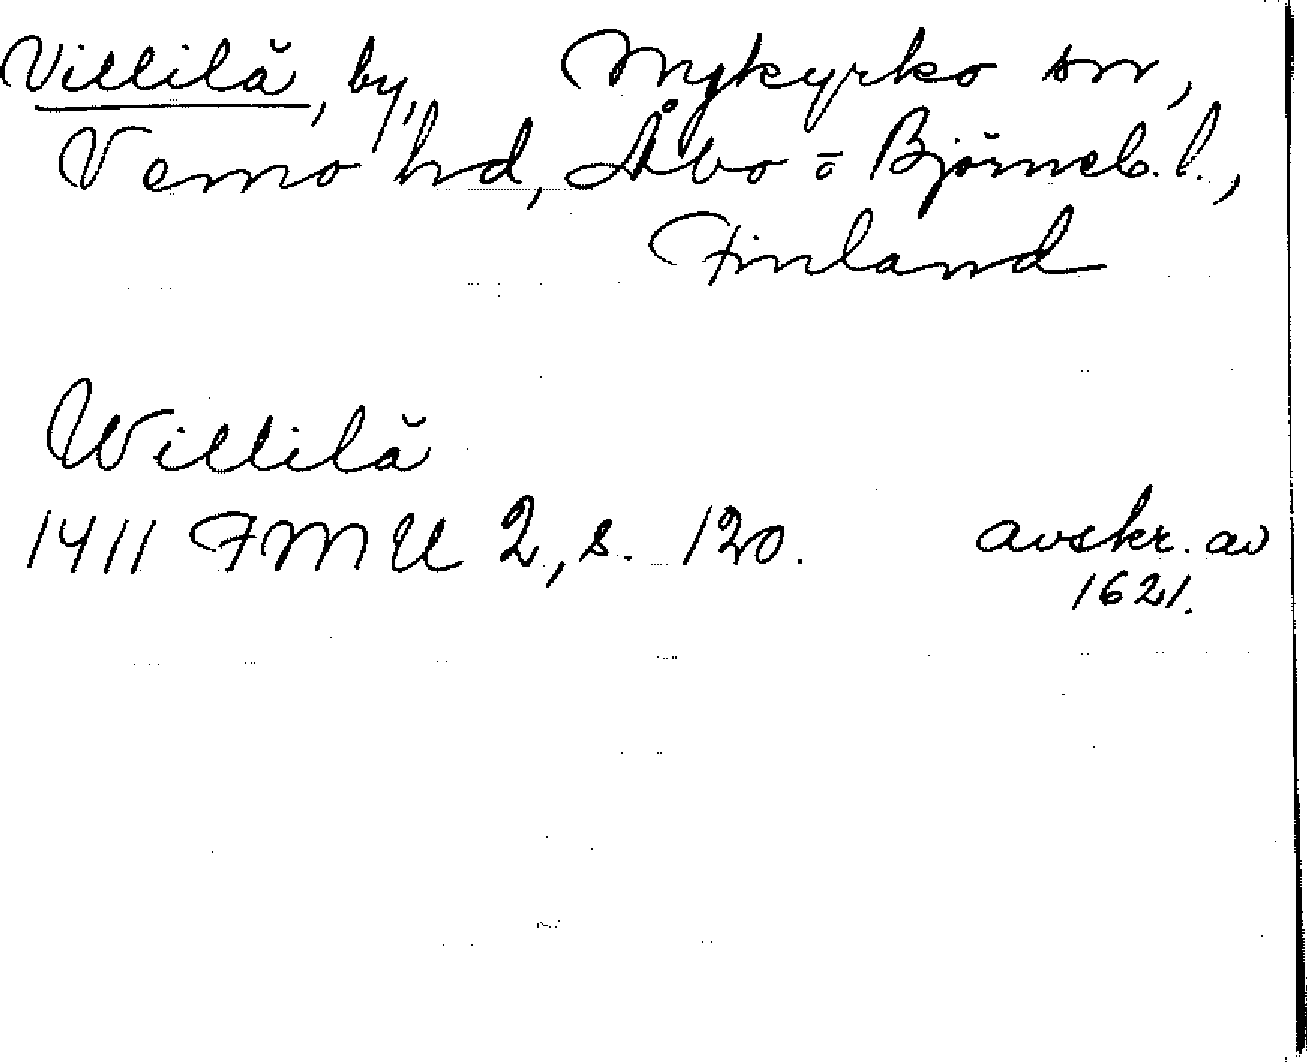 Villilä, by, Nykyrko sn,
Vemo hd, Åbo o Björneb. l.,
Finland
Willilä
1411 FMU 2, s. 120. avskr. av
1621.